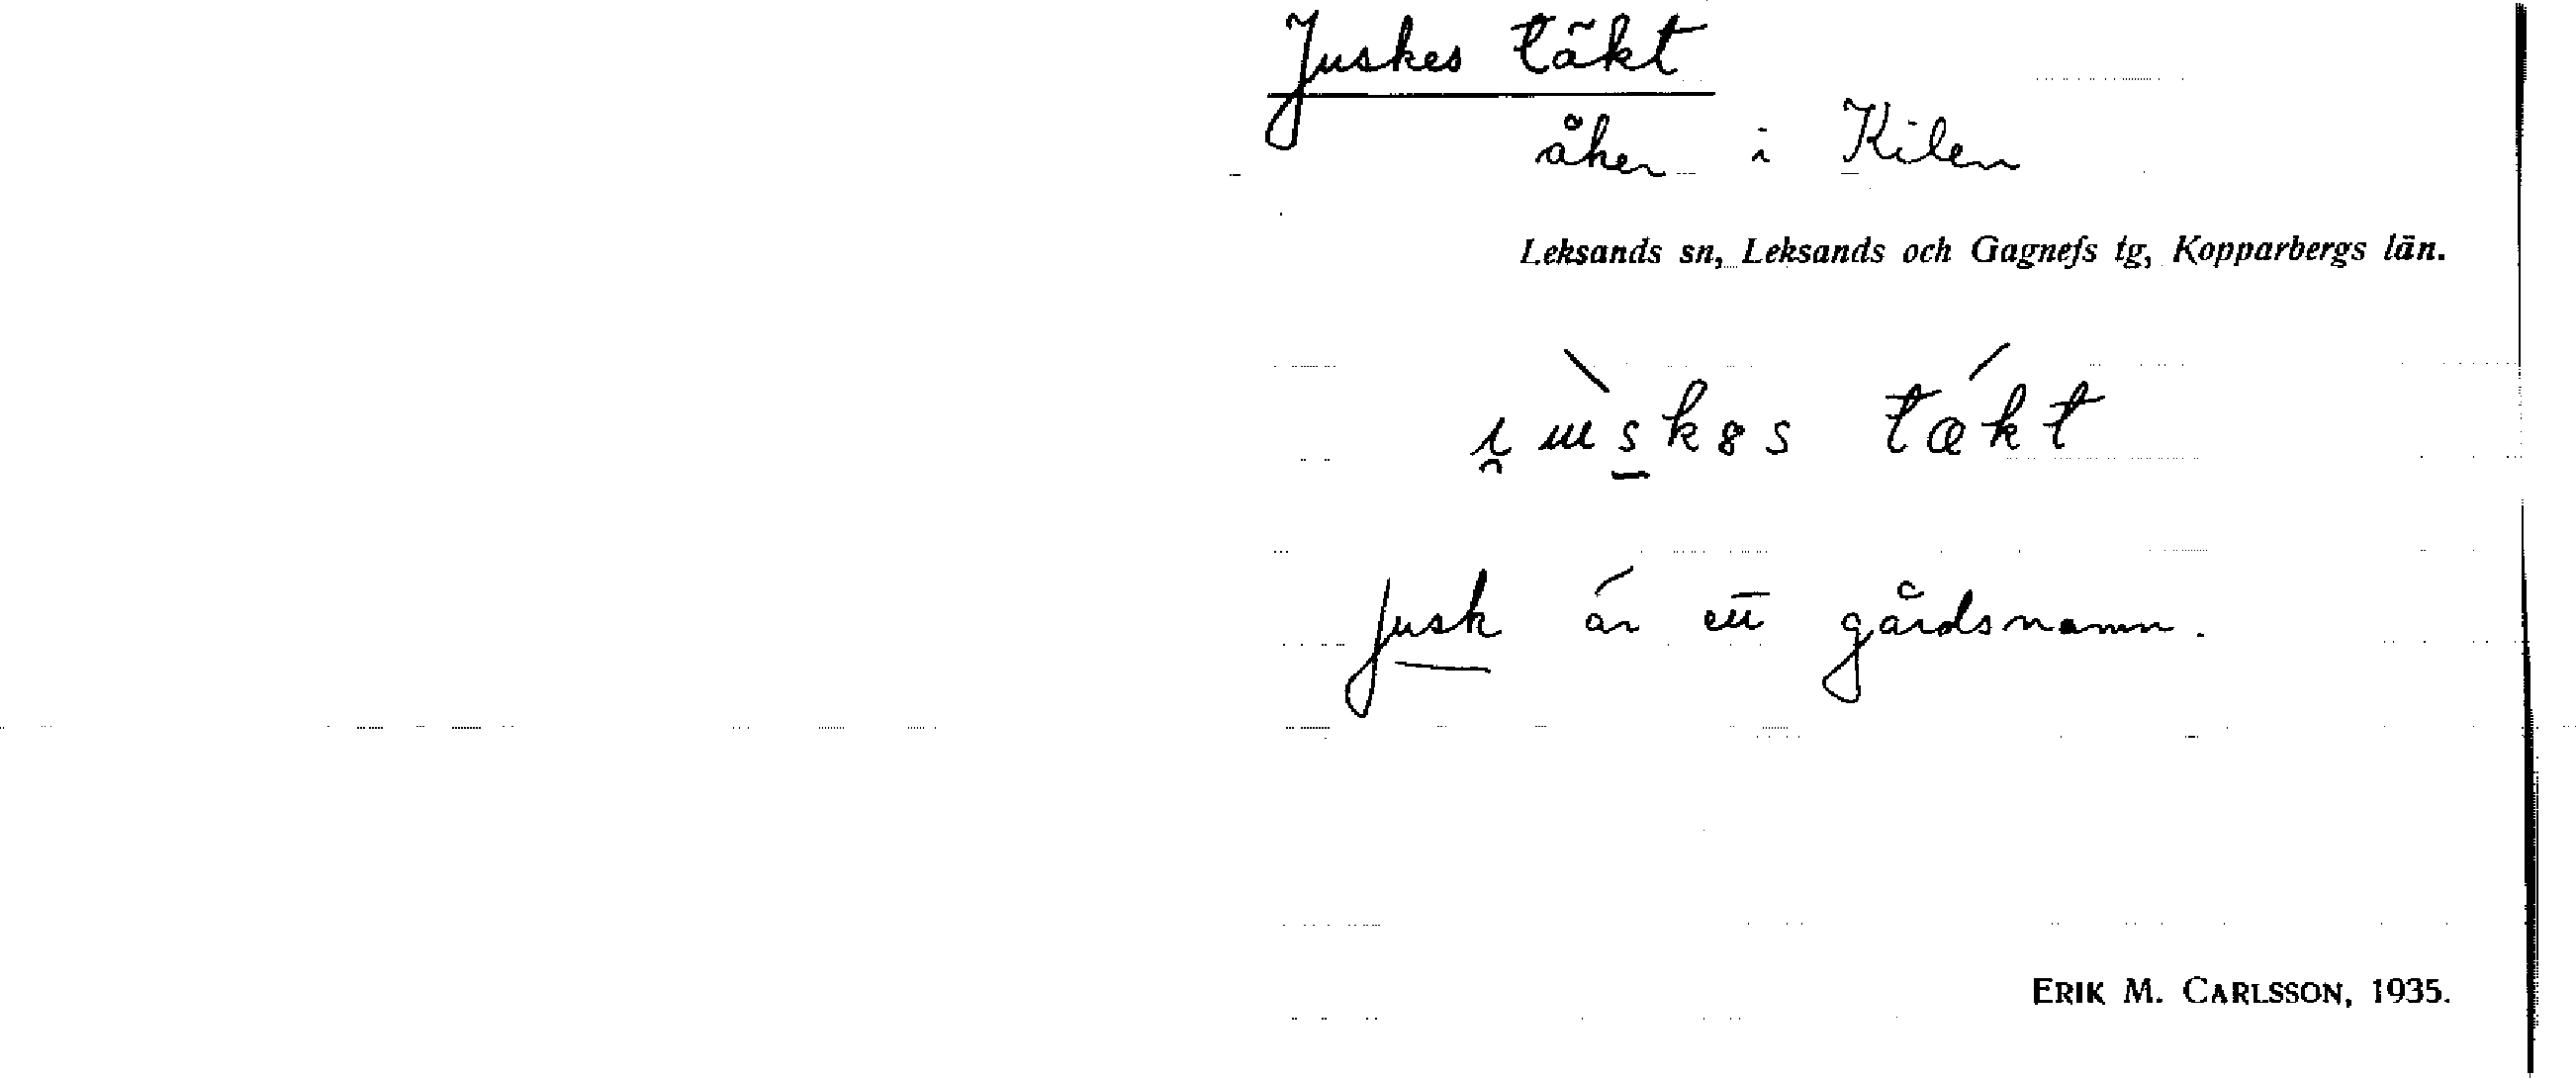 Juskes täkt
åker i Kilen
Leksands sn, Leksands och Gagnefs tg, Kopparbergs län.
täkt
Jusk är ett gårdsnamn.
ERIK M. CARLSSON, 1935.